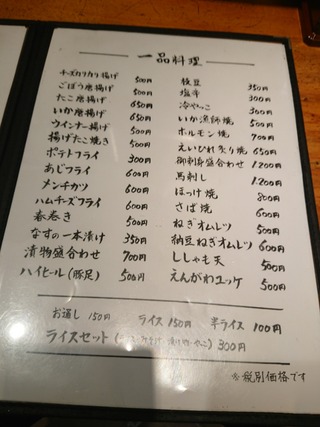 一品料理
チーズカリカリ揚げ 500円
ごぼう唐揚げ 500円
たこ唐揚げ 650円
いか唐揚げ 650円
ウインナー揚げ 500円
揚げたこ焼き 500円
ポテトフライ 300円
あじフライ 600円
メンチカツ 600円
ハムチーズフライ 600円
春巻き 500円
なすの一本漬け 350円
漬物盛合わせ 700円
ハイヒール(豚足) 500円
枝豆 350円
塩辛 300円
冷やっこ 300円
いか漁師焼 500円
ホルモン焼 700円
えいひれ炙り焼 650円
御刺身盛合わせ 1.200円
馬刺し 1.200円
ほっけ焼 800円
さば焼 600円
ねぎオムレツ 500円
納豆ねぎオムレツ 600円
ししゃも天 500円
えんがわユッケ 500円
お通し 150円 ライス 150円 半ライス 100円
ライスセット 300円
※税別価格です